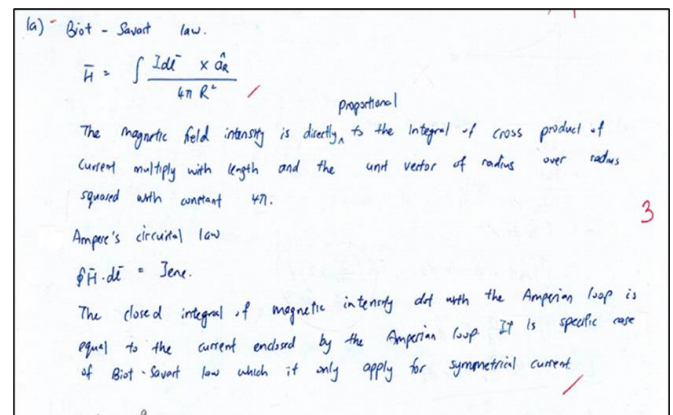 1a) - Biot - Savart law.
H̄ = ∫ Idl̄ × âR / 4π R²
proportional
The magnetic field intensity is directly ^ to the integral of cross product of
current multiply with length and the unit vector of radius over radius
squared with constant 4π.
3
Ampere's circuital law
∮H̄.dl̄ = Ienc.
The closed integral of magnetic intensity dot with the Amperian loop is
equal to the current enclosed by the Amperian loop. It is specific case
of Biot-Savart law which it only apply for symmetrical current.